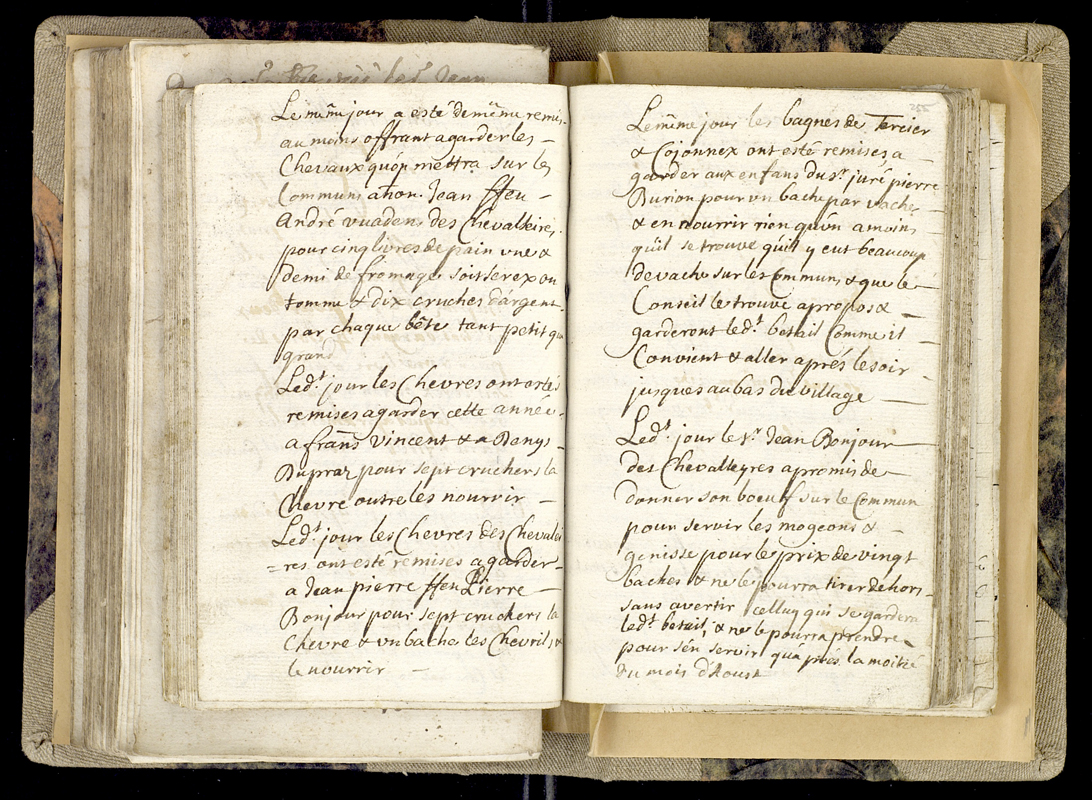 Le même jour a esté de même remis
au moins offrant a garder les
Chevaux quón mettra sur les
Communs a hon. Jean ffeu
André vuadens des Chevalleires,
pour cinq livres de pain vne &
demi de fromage soit serex ou
tomme & dix cruches dárgent
par chaque bête tant petit que
grand
Led.t jour les Chevres ont estés
remises a garder cette année
a frans vincent & a Denys
Dupraz pour sept cruchers la
Chevre outre les nourrir
Led.t jour les Chevres des Chevalei
=res ont esté remises a garder
a Jean pierre ffeu Pierre
Bonjour pour sept cruchers la
Chevre & vn bache les Chevrils, &
le nourrir
255
Le même jour les bagnes de Tercier
& Cojonnex ont esté remises a
garder aux enfans du s.r juré pierre
Burion pour vn bache par vache
& en nourrir rien qu'vn a moins
qu'il se trouve qu'il y eut beaucoup
de vache sur les Communs & que le
Conseil le trouve a propos &
garderont led.t betail Comme il
Convient & aller aprés le soir
jusques au bas du village
Led.t jour le s.r Jean Bonjour
des Chevalleyres a promis de
donner son boeuf sur le Commun
pour servir les mogeons &
genisse pour le prix de vingt
baches & ne le pourra tirer dehors
sans avertir celluy qui se gardera
led.t betail, & ne le pourra prendre
pour s'én servir qu'áprés la moitié
du mois d'Aoust